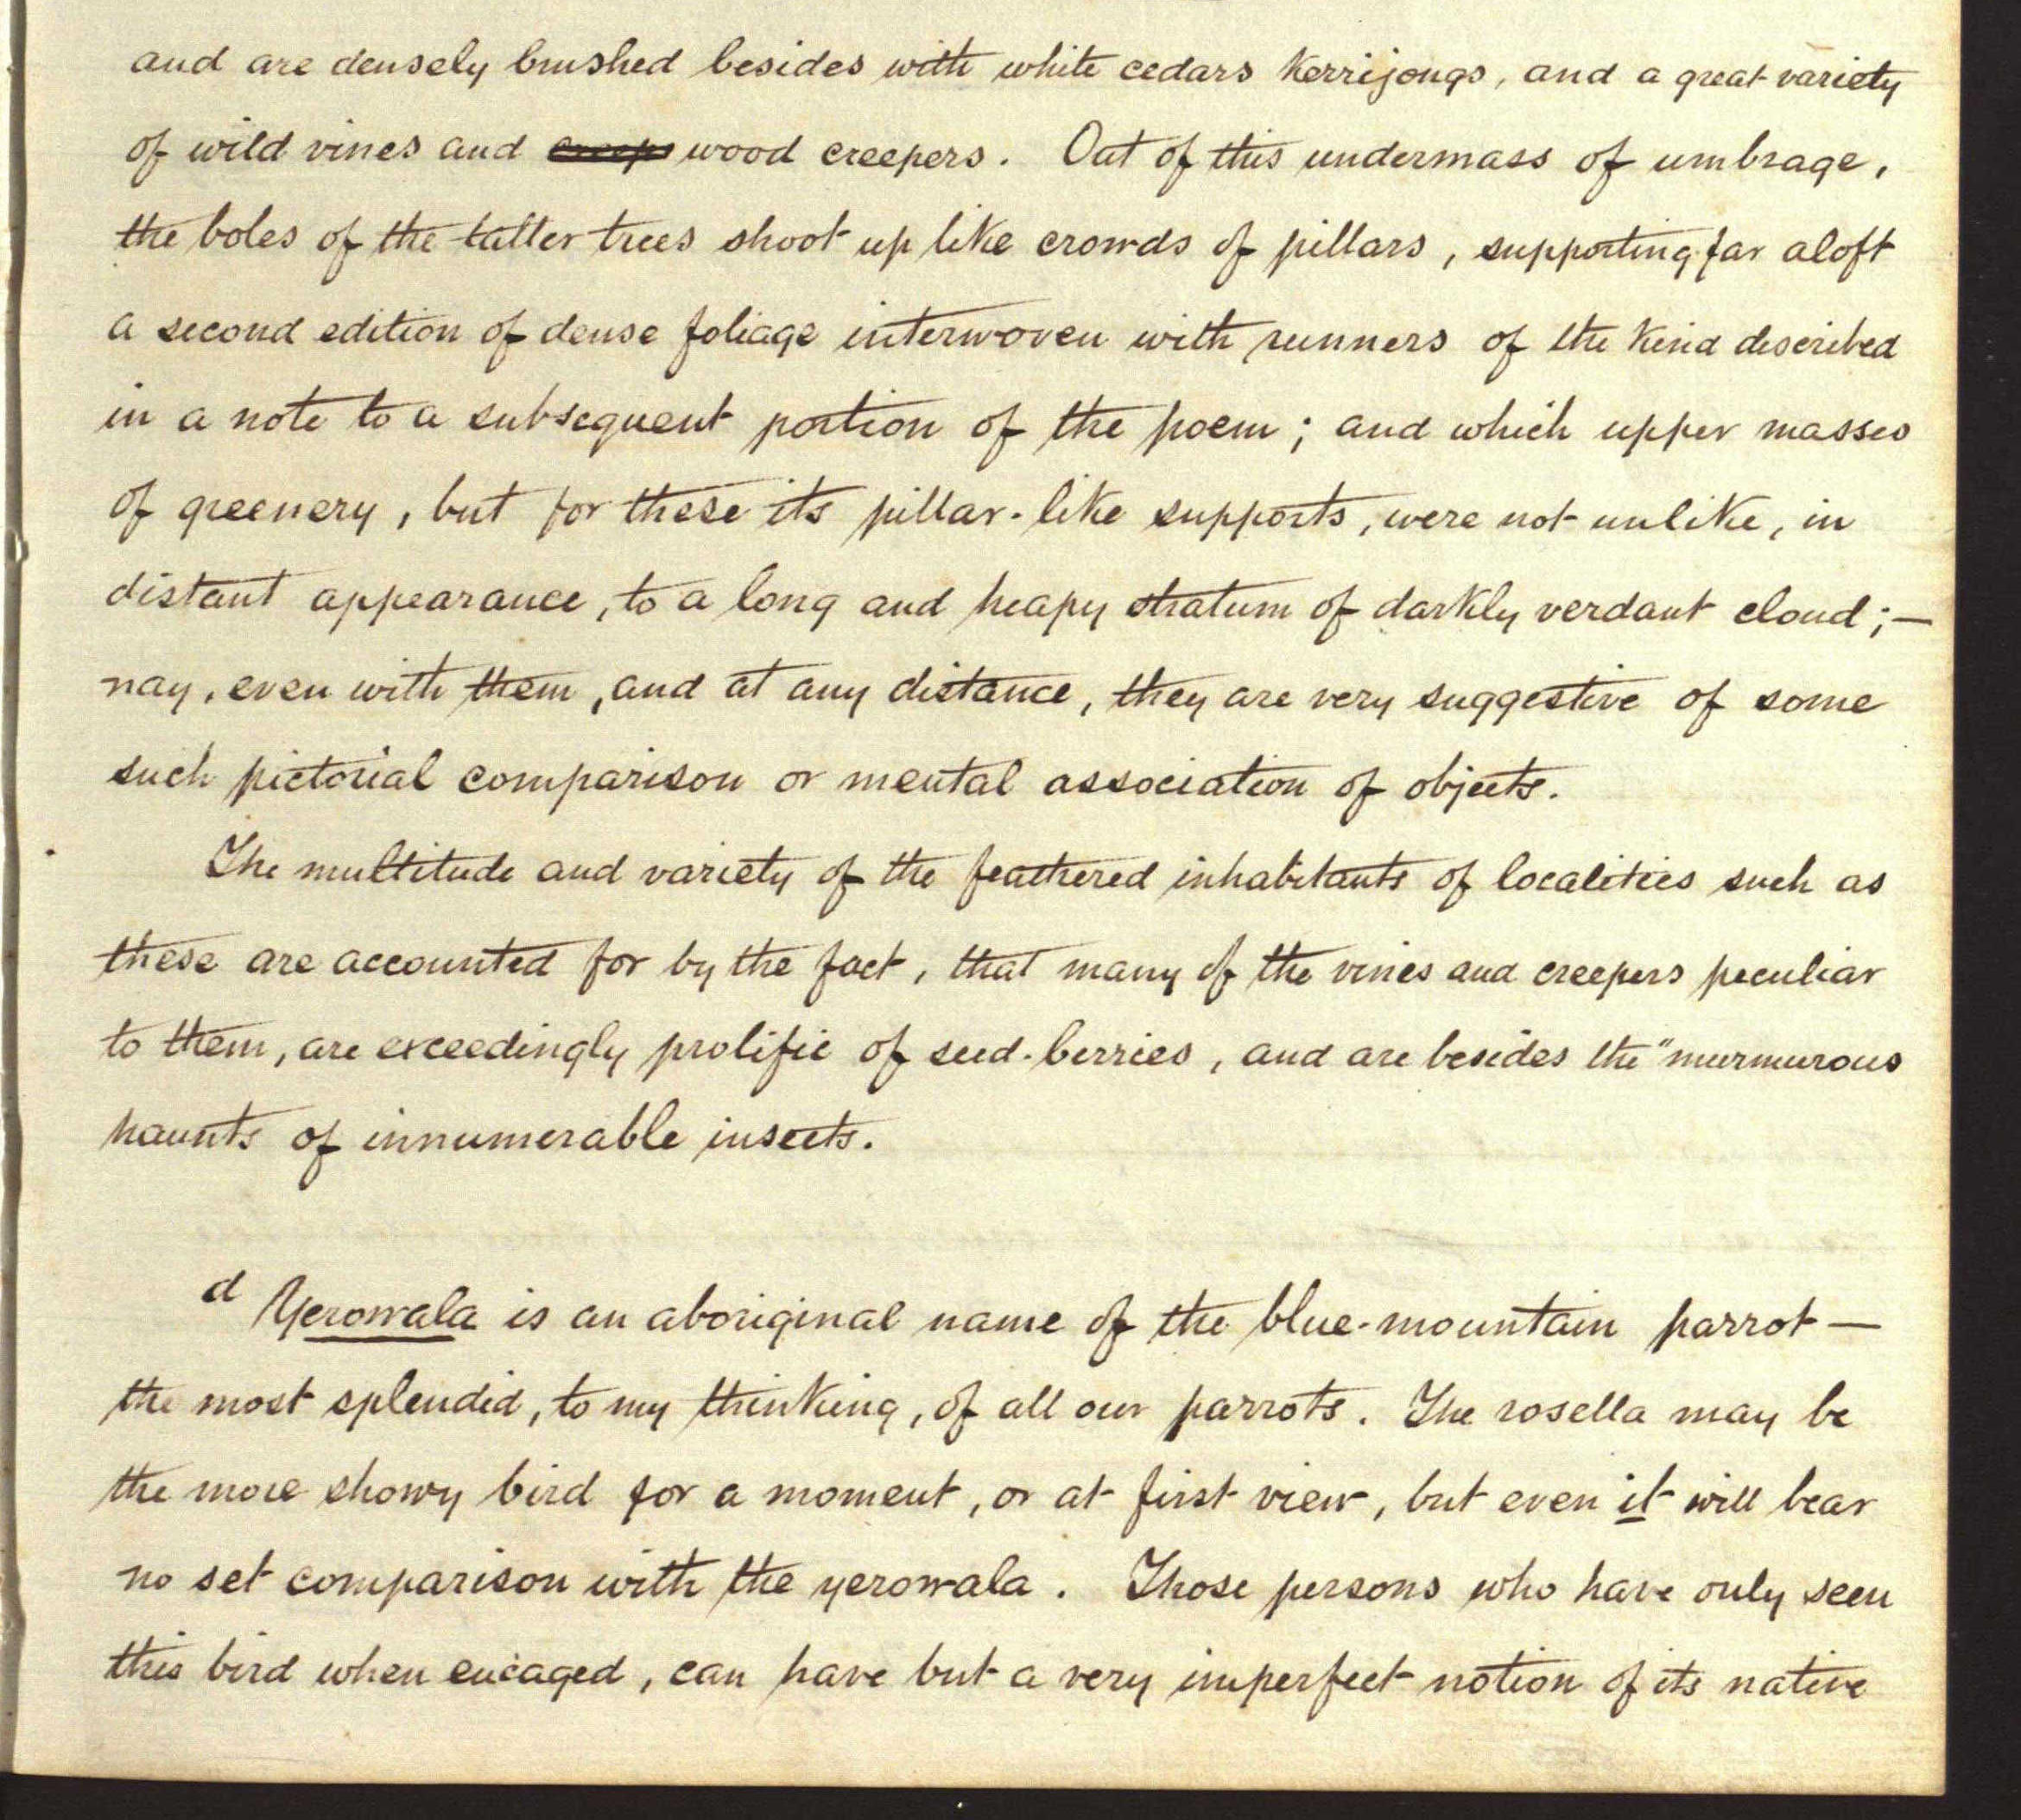 and are densely brushed besides with white cedars Kerrijongs, and a great variety
of wild vines and ~~creeps~~ wood creepers. Out of this undermass of umbrage,
the boles of the taller trees shoot up like crowds of pillars, supporting far aloft
a second edition of dense foliage interwoven with runners of the kind described
in a note to a subsequent portion of the poem; and which upper masses
of greenery, but for these its pillar-like supports, were not unlike, in
distant appearance, to a long and heapy stratum of darkly verdant cloud;—
nay, even with them, and at any distance, they are very suggestive of some
such pictorial comparison or mental association of objects.
The multitude and variety of the feathered inhabitants of localities such as
these are accounted for by the fact, that many of the vines and creepers peculiar
to them, are exceedingly prolific of seed-berries, and are besides the "murmurous
haunts of innumerable insects.
d Yerowala is an aboriginal name of the blue-mountain parrot—
the most splendid, to my thinking, of all our parrots. The rosella may be
the more showy bird for a moment, or at first view, but even it will bear
no set comparison with the yerowala. Those persons who have only seen
this bird when encaged, can have but a very imperfect notion of its native